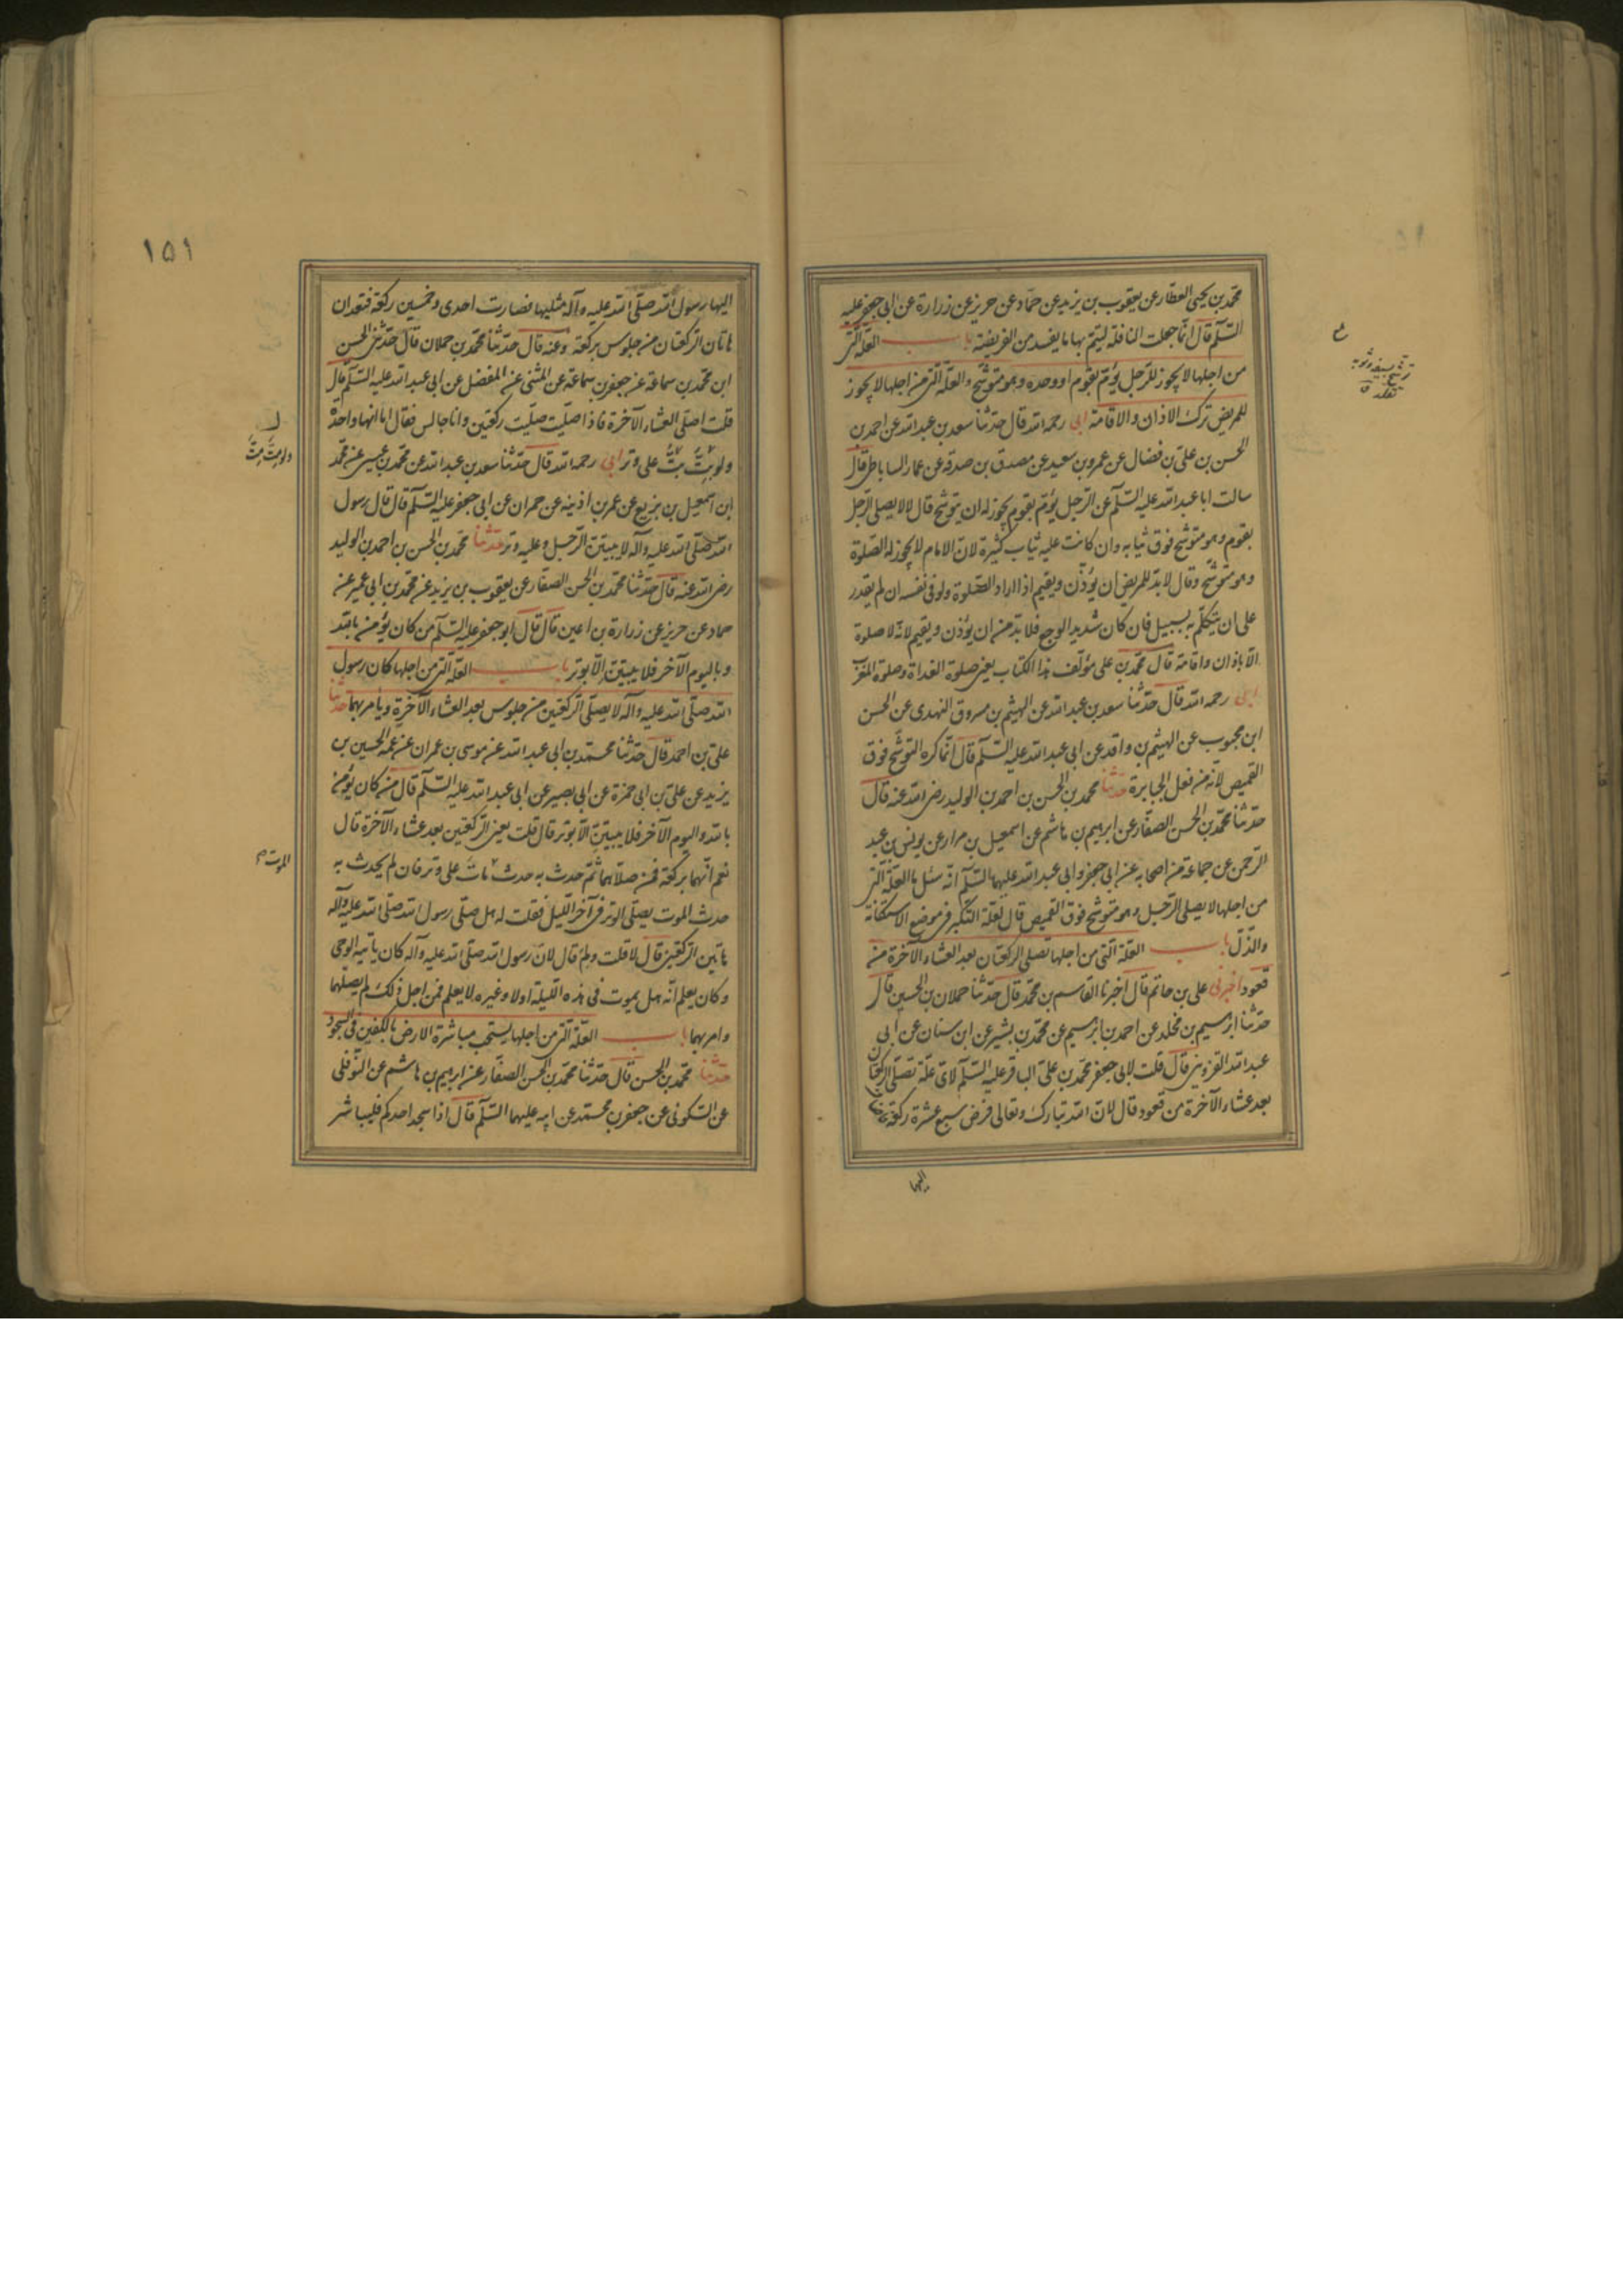 محمد بن يحيى العطار عن يعقوب بن يزيد عن حماد عن حريز عن زرارة عن ابى جعفر عليه
السلم قال انما جعلت النافلة ليتم بها ما يفسد من الفريضة باب العلة التى
من اجلها لا يجوز للرجل يؤم بقوم او وحده وهو متوشح والعلة التى من اجلها لا يجوز
للمريض ترك الاذان والاقامة ابى رحمه الله قال حدثنا سعد بن عبد الله عن احمد بن
الحسن بن على بن فضال عن عمرو بن سعيد عن مصدق بن صدقه عن عمار الساباطى قال
سالت ابا عبد الله عليه السلم عن الرجل يؤم بقوم يجوز له ان يتوشح قال لا لا يصلى الرجل
بقوم وهو متوشح فوق ثيابه وان كانت عليه ثياب كثيرة لان الامام لا يجوز له الصلوة
وهو متوشح وقال لا بد للمريض ان يؤذن ويقيم اذا اراد الصلوة ولو فى نفسه ان لم يقدر
على ان يتكلم به بسبيل فان كان شديد الوجع فلا بد من ان يؤذن ويقيم لانه لا صلوة
الا باذان واقامة قال محمد بن على مؤلف هذا الكتاب يعنى صلوة الغداة وصلوة المغرب
ابى رحمه الله قال حدثنا سعد بن عبد الله عن الهيثم بن مسروق النهدى عن الحسن
ابن محبوب عن الهيثم بن واقد عن ابى عبد الله عليه السلم قال انما كره التوشح فوق
القميص لانه من فعل الجبابرة حدثنا محمد بن الحسن بن احمد بن الوليد رضى الله عنه قال
حدثنا محمد بن الحسن الصفار عن ابرهيم بن هاشم عن اسمعيل بن مرار عن يونس بن عبد
الرحمن عن جماعة من اصحابه عن ابى جعفر وابى عبد الله عليهما السلم انه سئل ما العلة التى
من اجلها لا يصلى الرجل وهو متوشح فوق القميص قال لعلة التكبر فى موضع الاستكانة
والذل باب العلة التى من اجلها تصلى الركعتان بعد العشاء الآخرة من
قعود اخبرنى على بن حاتم قال اخبرنا القاسم بن محمد قال حدثنا حمدان بن الحسين قال
حدثنا ابرهيم بن مخلد عن احمد بن ابرهيم عن محمد بن بشير عن ابن سنان عن ابى
عبد الله القزوينى قال قلت لابى جعفر محمد بن على الباقر عليه السلم لاى علة تصلى الركعتان
بعد عشاء الآخرة من قعود قال لان الله تبارك وتعالى فرض سبع عشرة ركعة فاضاف
اليها
١٥١
اليها رسول الله صلى الله عليه وآله مثليها فصارت احدى وخمسين ركعة فتعدان
هاتان الركعتان من جلوس بركعة وعنه قال حدثنا محمد بن حملان قال حدثنى الحسن
ابن محمد بن سماعة عن جعفر بن سماعة عن المثنى عن المفضل عن ابى عبد الله عليه السلم قال
قلت اصلى العشاء الآخرة فاذا صليت صليت ركعتين وانا جالس فقال اما انها واحدة
ولو بت بت على وتر ابى رحمه الله قال حدثنا سعد بن عبد الله عن محمد بن عيسى عن محمد
ابن اسمعيل بن بزيع عن عمر بن اذينه عن حمران عن ابى جعفر عليه السلم قال قال رسول
الله صلى الله عليه وآله لا يبيتن الرجل وعليه وتر حدثنا محمد بن الحسن بن احمد بن الوليد
رضى الله عنه قال حدثنا محمد بن الحسن الصفار عن يعقوب بن يزيد عن محمد بن ابى عمير عن
حماد عن حريز عن زرارة بن اعين قال قال ابو جعفر عليه السلم من كان يؤمن بالله
وباليوم الآخر فلا يبيتن الا بوتر باب العلة التى من اجلها كان رسول
الله صلى الله عليه وآله لا يصلى الركعتين من جلوس بعد العشاء الآخرة ويأمر بهما حدثنا
على بن احمد قال حدثنا محمد بن ابى عبد الله عن موسى بن عمران عن عمه الحسين بن
يزيد عن على بن ابى حمزة عن ابى بصير عن ابى عبد الله عليه السلم قال من كان يؤمن
بالله واليوم الآخر فلا يبيتن الا بوتر قال قلت يعنى الركعتين بعد عشاء الآخرة قال
نعم انهما بركعة فمن صلاهما ثم حدث به حدث مات على وتر فان لم يحدث به
حدث الموت يصلى الوتر فى آخر الليل فقلت له هل صلى رسول الله صلى الله عليه وآله
هاتين الركعتين قال لا قلت ولم قال لان رسول الله صلى الله عليه وآله كان ياتيه الوحى
وكان يعلم انه هل يموت فى هذه الليلة اولا وغيره لا يعلم فمن اجل ذلك لم يصلهما
وامر بهما باب العلة التى من اجلها يستحب مباشرة الارض بالكفين فى السجود
حدثنا محمد بن الحسن قال حدثنا محمد بن الحسن الصفار عن ابرهيم بن هاشم عن النوفلى
عن السكونى عن جعفر بن محمد عن ابيه عليهما السلم قال اذا سجد احدكم فليباشر
ولو مِتَّ مِتَّ
الموت